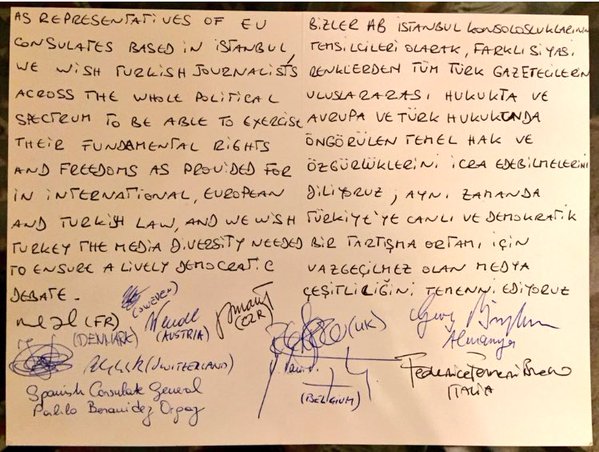 AS REPRESENTATIVES OF EU
CONSULATES BASED IN ISTANBUL,
WE WISH TURKISH JOURNALISTS
ACROSS THE WHOLE POLITICAL
SPECTRUM TO BE ABLE TO EXERCISE
THEIR FUNDAMENTAL RIGHTS
AND FREEDOMS AS PROVIDED FOR
IN INTERNATIONAL, EUROPEAN
AND TURKISH LAW, AND WE WISH
TURKEY THE MEDIA DIVERSITY NEEDED
TO ENSURE A LIVELY DEMOCRATIC
DEBATE.
BİZLER AB İSTANBUL KONSOLOSLUKLARININ
TEMSİLCİLERİ OLARAK, FARKLI SİYASİ
RENKLERDEN TÜM TÜRK GAZETECİLERİN
ULUSLARARASI HUKUKTA VE
AVRUPA VE TÜRK HUKUKUNDA
ÖNGÖRÜLEN TEMEL HAK VE
ÖZGÜRLÜKLERİNİ İCRA EDEBİLMELERİNİ
DİLİYORUZ, AYNI ZAMANDA
TÜRKİYE'YE CANLI VE DEMOKRATİK
BİR TARTIŞMA ORTAMI İÇİN
VAZGEÇİLMEZ OLAN MEDYA
ÇEŞİTLİLİĞİNİ TEMENNİ EDİYORUZ
(SWEDEN)
(FR)
(DENMARK)
(AUSTRIA)
(CZR)
(UK)
Almanya
(SWITZERLAND)
(BELGIUM)
ITALIA
Spanish Consulate General
Pablo